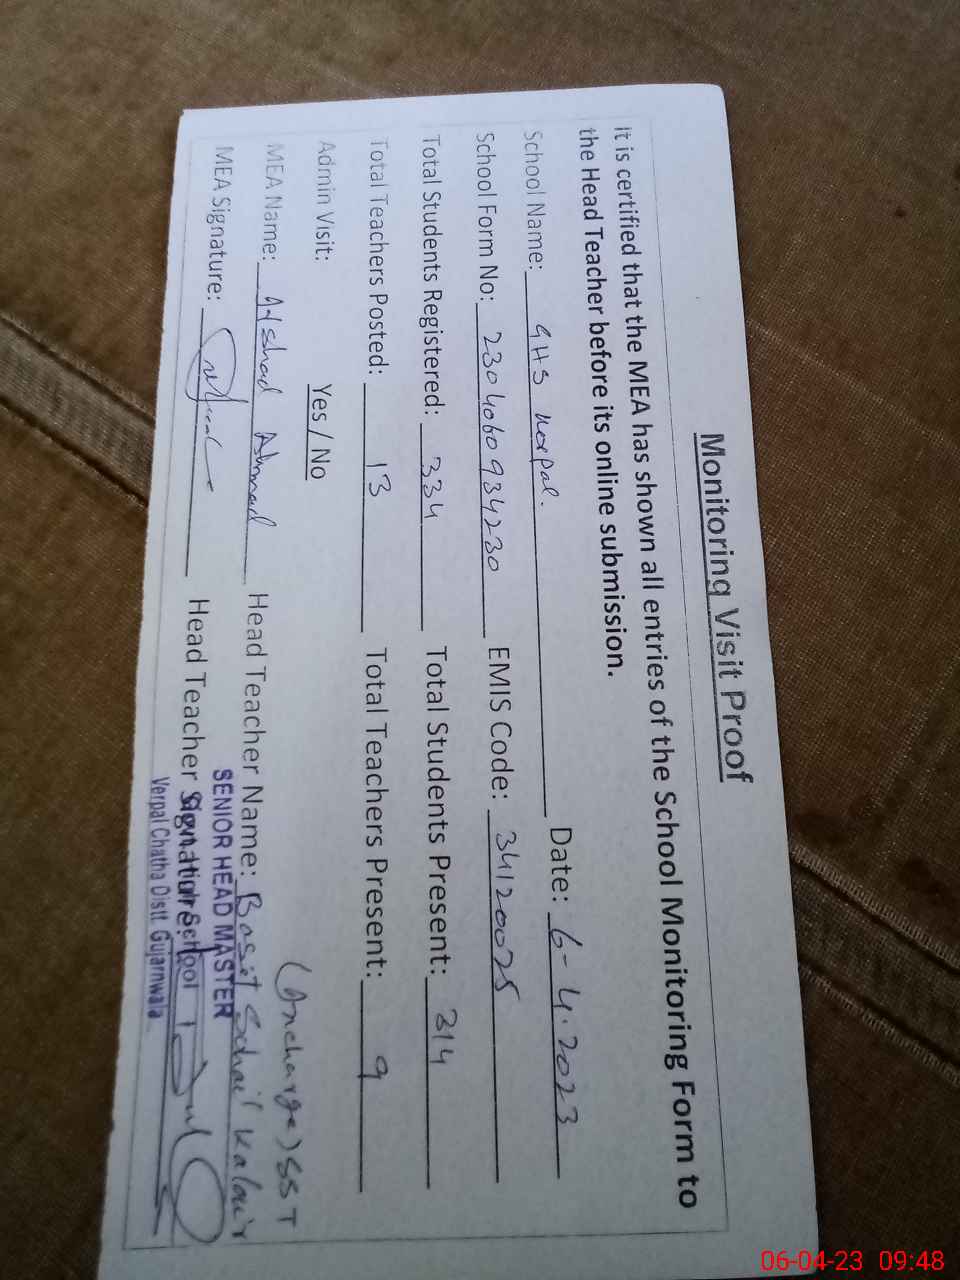 Monitoring Visit Proof
It is certified that the MEA has shown all entries of the School Monitoring Form to
the Head Teacher before its online submission.
School Name: GHS verpal. Date: 6-4-2023
School Form No: 2304060934230 EMIS Code: 34120025
Total Students Registered: 334 Total Students Present: 314
Total Teachers Posted: 13 Total Teachers Present: 9
Admin Visit: Yes / No
(Incharge) SST
MEA Name: Arshad Ahmad Head Teacher Name: Basit
SENIOR HEAD MASTER
MEA Signature: Head Teacher Signature:
School
Verpal Chatha Distt. Gujarnwala
06-04-23 09:48